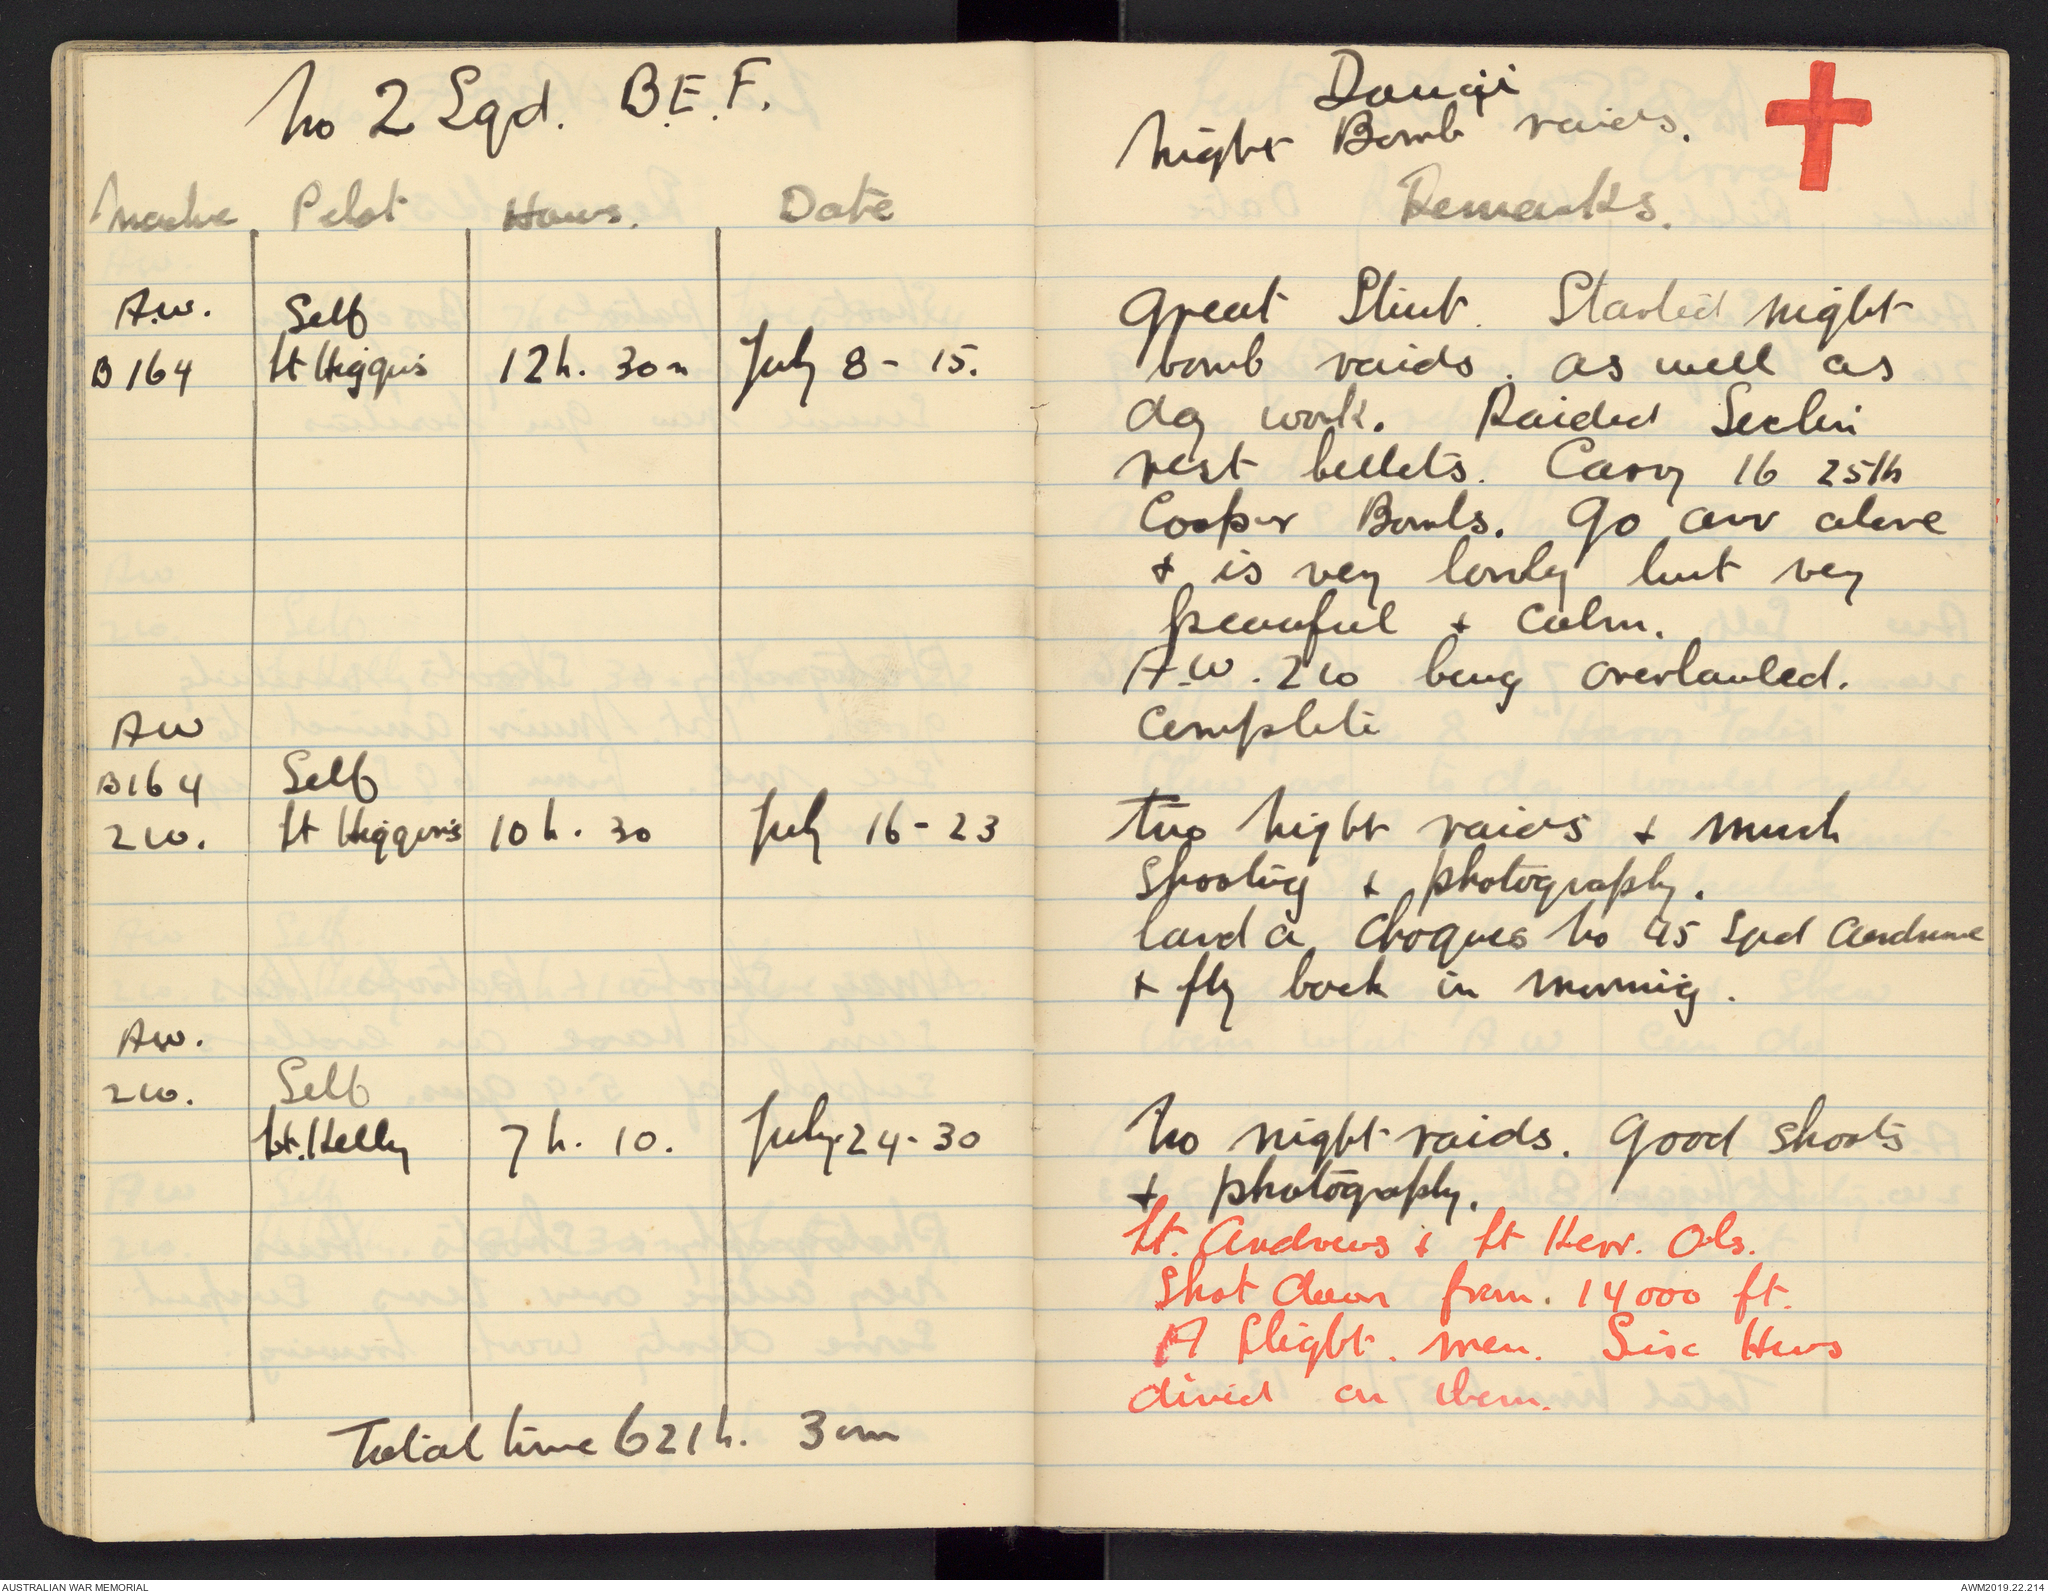 No 2 Sqd. B.E.F.
Machine Pilot Hours. Date
A.W. Self
B 164 Lt Higgins 12h. 30m July 8 - 15.
AW
B164 Self
2 10. Lt Higgins 10 h. 30 July 16 - 23
AW.
2 10. Self
Lt. Kelly 7 h. 10. July. 24 - 30
Total time 621 h. 30m
Douai
Night Bomb raids.
Remarks.
Great Stunt. Started night
bomb raids. as well as
day work. Raided Seclin
rest billets. Carry 16 25lb
Cooper Bombs. Go over alone
+ is very lonely but very
peaceful + calm.
A.W. 210 being overhauled.
Complete
Two night raids + much
shooting + photography.
land a Choques No 45 Sqd aerodrome
+ fly back in morning.
No night raids. Good shoots
+ photography.
Lt. Andrews + Lt Kerr. Obs.
Shot down from. 14000 ft.
A Flight. men. Six Huns
dived on them.
AUSTRALIAN WAR MEMORIAL
AWM2019.22.214